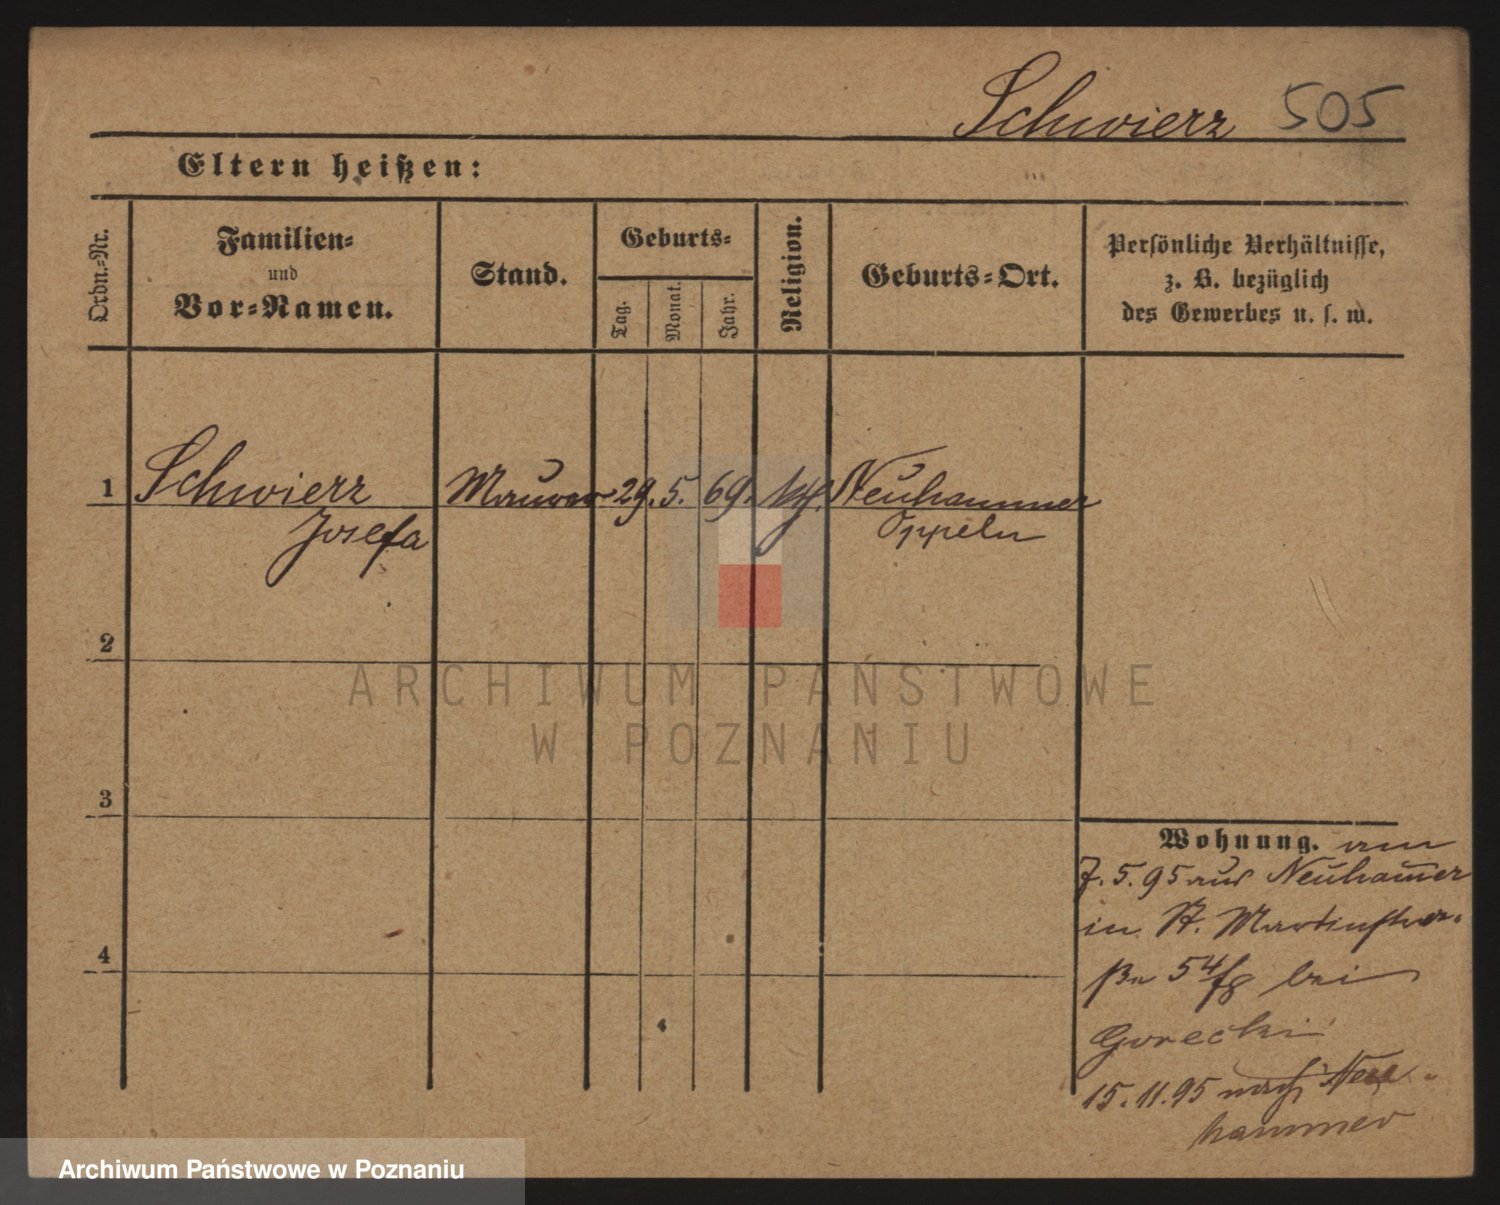 Schwierz 505
Eltern heißen:
Ordn.-Nr.
Familien-
und
Vor-Namen.
Stand.
Geburts-
Tag.
Monat.
Jahr.
Religion.
Geburts-Ort.
Persönliche Verhältnisse,
z. B. bezüglich
des Gewerbes u. s. w.
1 Schwierz Maurer 29. 5. 69. kth. Neuhammer
Josefa Oppeln
2
3
4
ARCHIWUM PAŃSTWOWE
W POZNANIU
Wohnung. am
7. 5. 95 aus Neuham̅er
in St. Martinstra-
ße 54 bei
Gorecki
15. 11. 95 nach Neu-
hammer
Archiwum Państwowe w Poznaniu